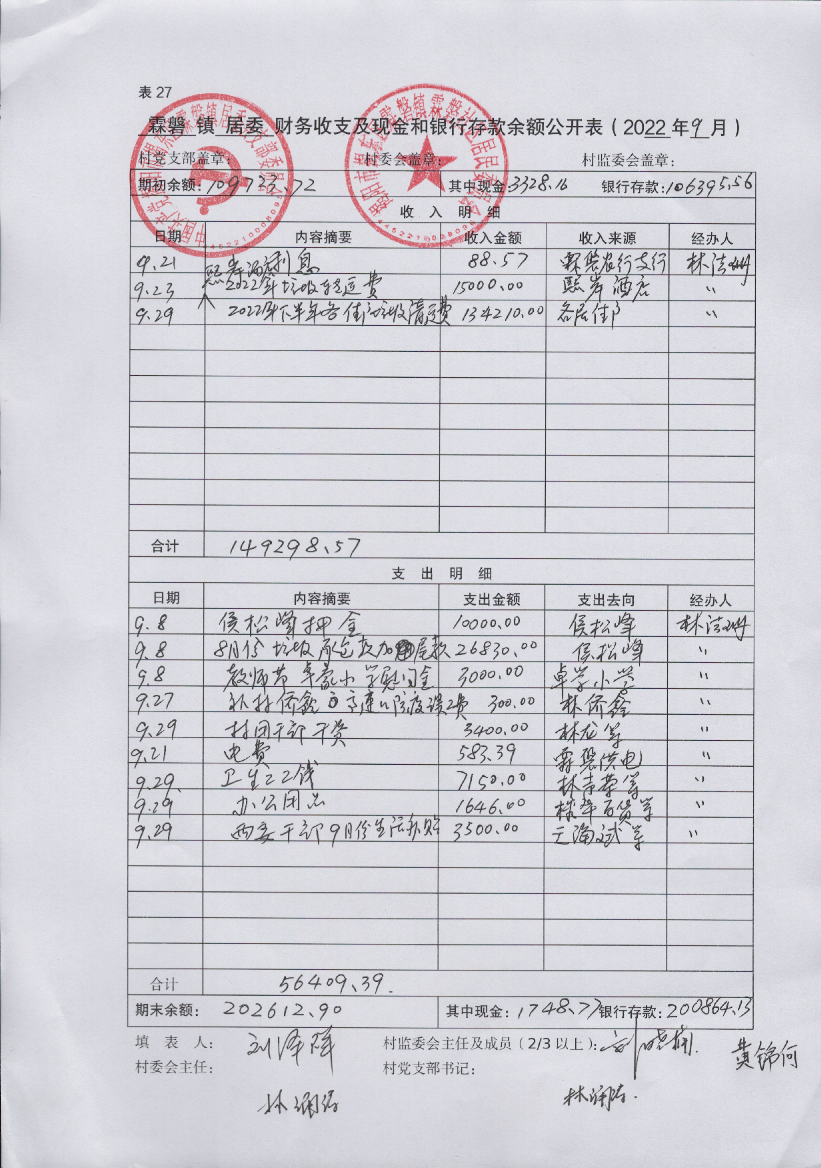 表 27
霖磐 镇 居委 财务收支及现金和银行存款余额公开表（2022 年 9 月）
村党支部盖章： 村委会盖章： 村监委会盖章：
期初余额：109723.72 其中现金：3328.16 银行存款：106395.56
收 入 明 细
日期 内容摘要 收入金额 收入来源 经办人
9.21 利息 88.57 霖磐农行支行 林
9.23 熙岸酒店2022年垃圾清运费 15000.00 熙岸酒店 〃
9.29 2022年下半年各住户垃圾清运费 134210.00 各居住户 〃
合计 149298.57
支 出 明 细
日期 内容摘要 支出金额 支出去向 经办人
9.8 侯松峰押金 10000.00 侯松峰 林
9.8 8月份垃圾承包款加尾款 26830.00 侯松峰 〃
9.8 教师节卓蒙小学慰问金 3000.00 卓学小学 〃
9.27 补林侨鑫 防疫误工费 300.00 林侨鑫 〃
9.29 村团干部干资 3400.00 林龙等 〃
9.21 电费 583.39 霖磐供电 〃
9.29 卫生工工钱 7150.00 林 荣等 〃
9.29 办公用品 1646.00 百货等 〃
9.29 两委干部9月份生活补贴 3500.00 等 〃
合计 56409.39
期末余额：202612.90 其中现金：1748.77 银行存款：200864.13
填 表 人：刘泽群 村监委会主任及成员（2/3 以上）： 黄锦何
村委会主任： 村党支部书记：